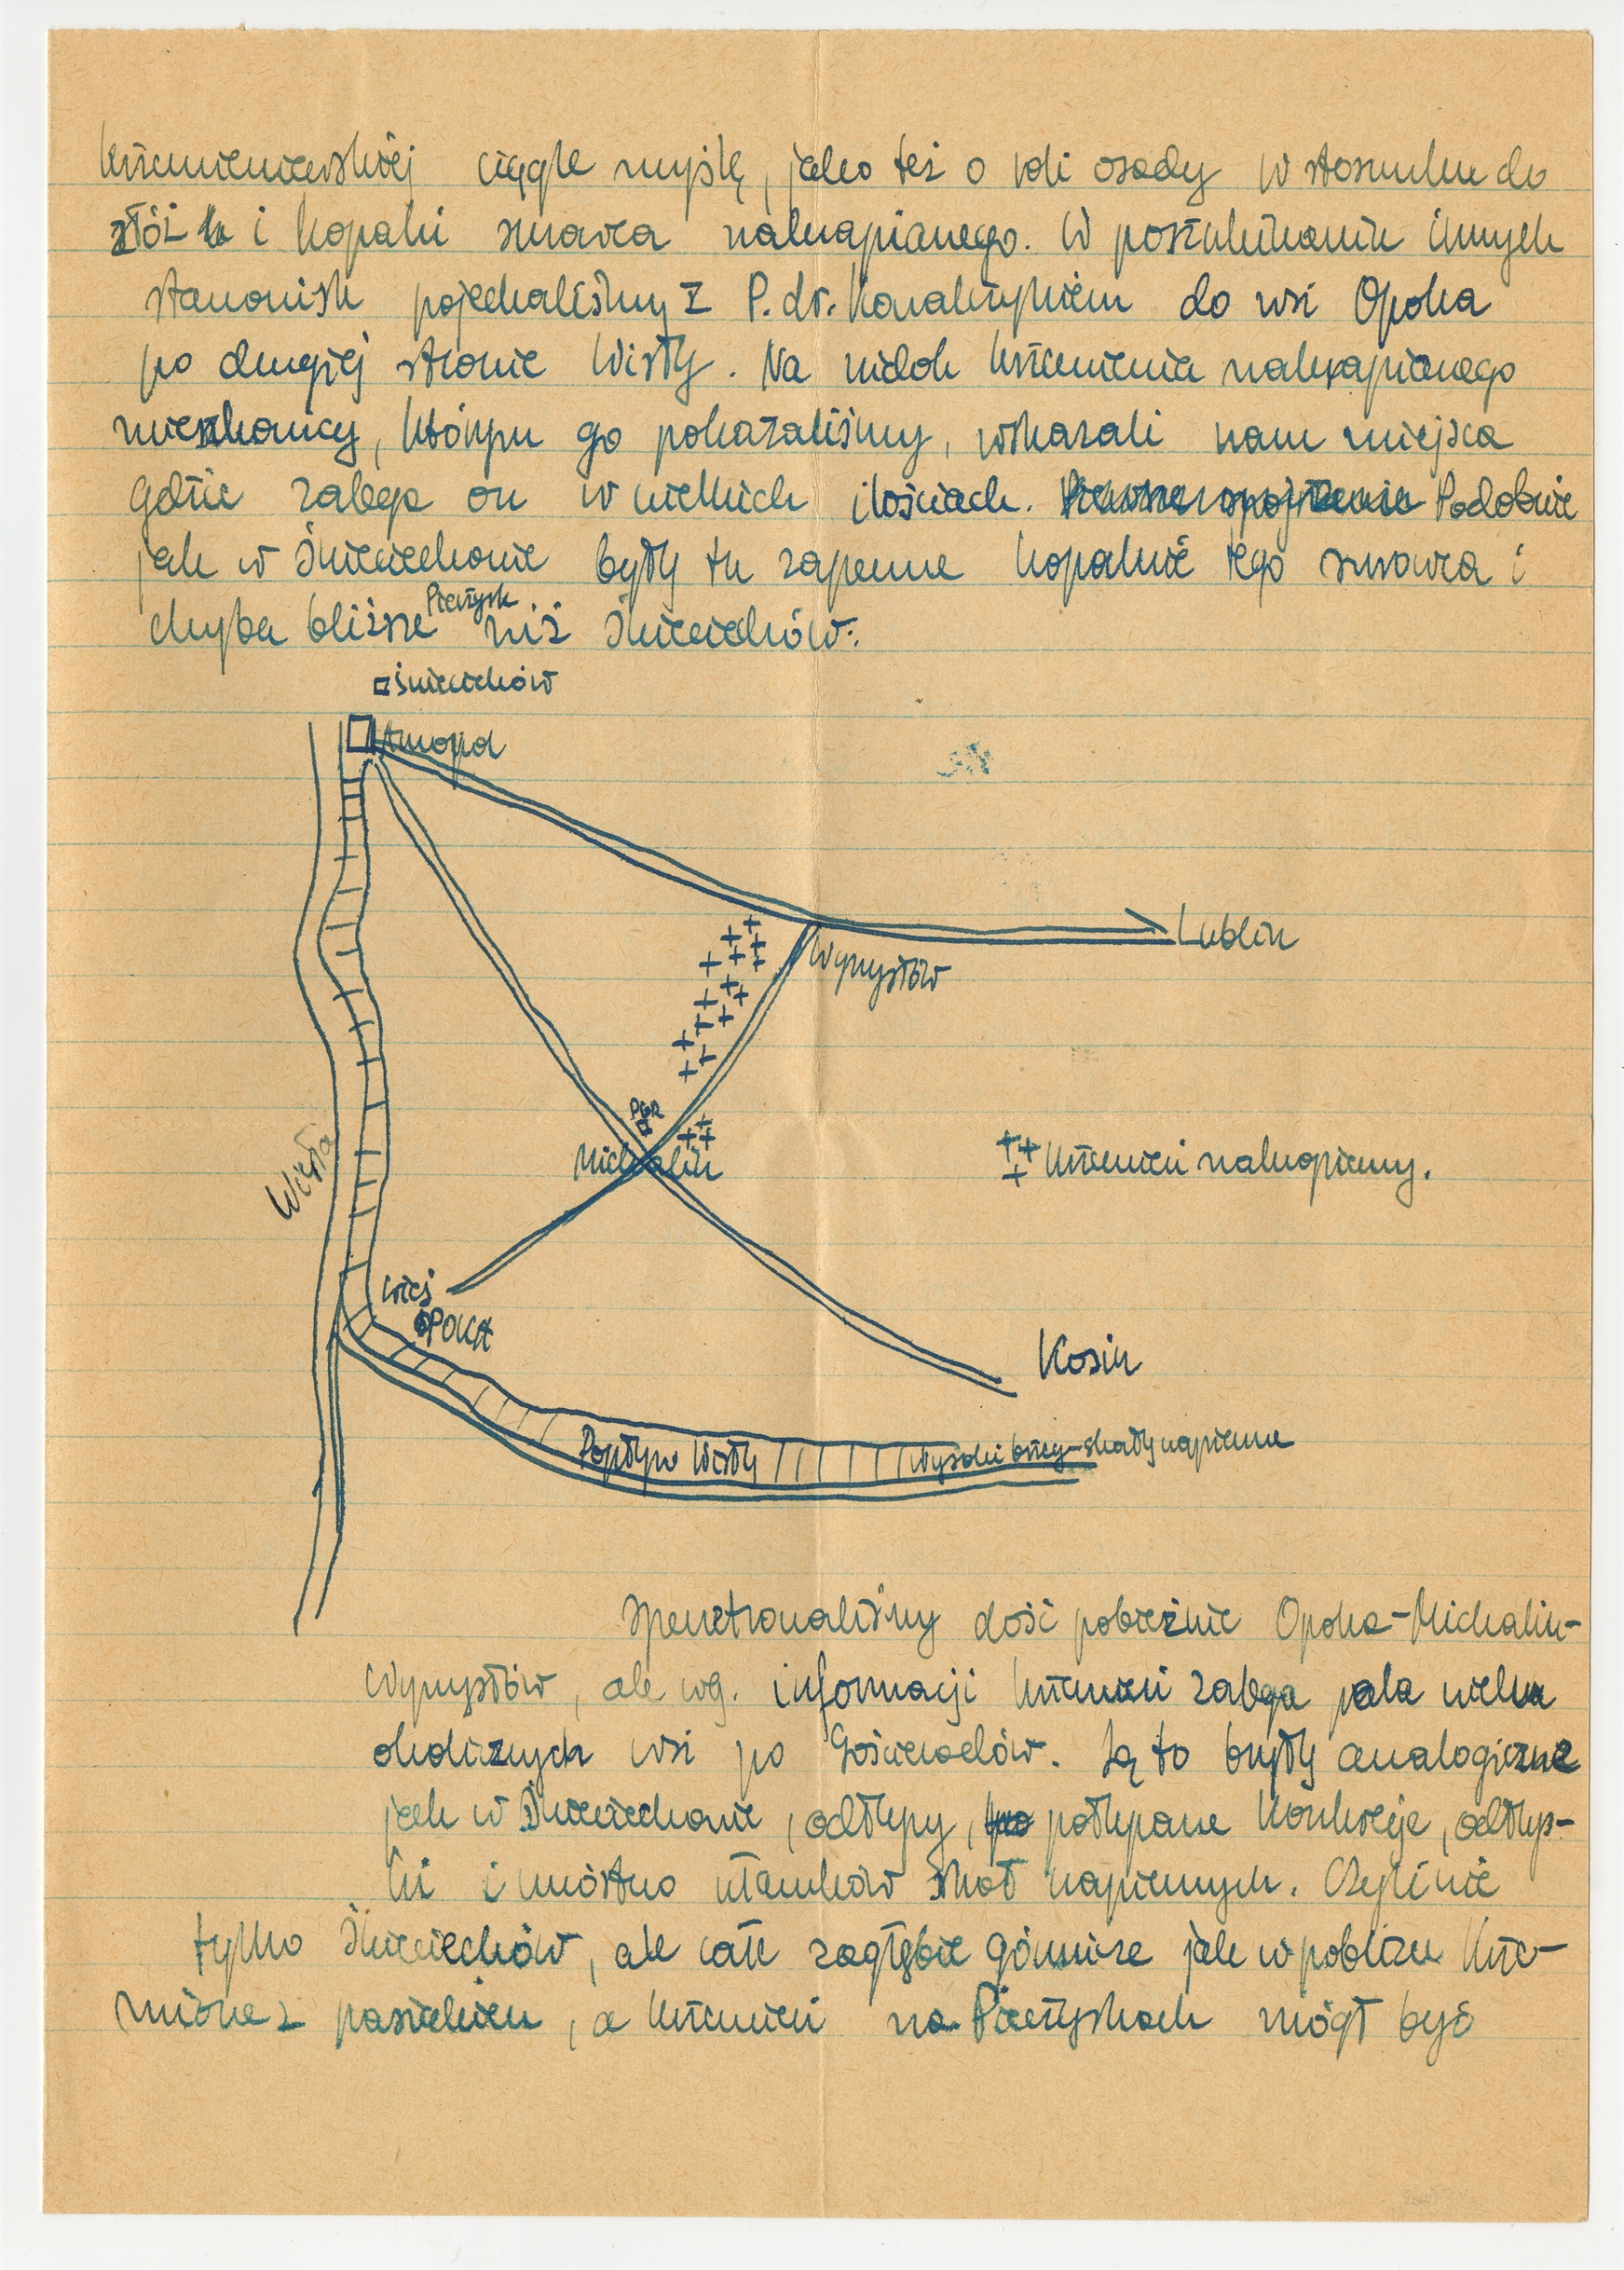 krzemieniarskiej ciągle myślę, jako też o roli osady w stosunku do
złóż i kopalń surowca nakrapianego. W poszukiwaniu innych
stanowisk pojechaliśmy z P. dr. Kowalczykiem do wsi Opoka
po drugiej stronie Wisły. Na widok krzemienia nakrapianego
mieszkańcy, którym go pokazaliśmy, wskazali nam miejsca
gdzie zalega on w wielkich ilościach. Podobnie
jak w Świeciechowie były tu zapewne kopalnie tego surowca i
chyba bliższe Pieczysk niż Świeciechów:
Świeciechów
Annopol
Lublin
Wymysłów
PGR
Michalin
krzemień nakrapiany.
Wisła
Wieś
OPOKA
Kosin
Dopływ Wisły
Wysoki brzeg – skały wapienne
Spenetrowaliśmy dość pobieżnie Opoka – Michalin –
Wymysłów, ale wg. informacji krzemień zalega pola wielu
okolicznych wsi po Gościeradów. Są to bryły analogiczne
jak w Świeciechowie, odłupy, połupane konkrecje, odłup-
ki i mnóstwo ułamków skał wapiennych. Czyli nie
tylko Świeciechów, ale całe zagłębie górnicze jak w pobliżu Krze-
mionek, a krzemień na Pieczyskach mógł być